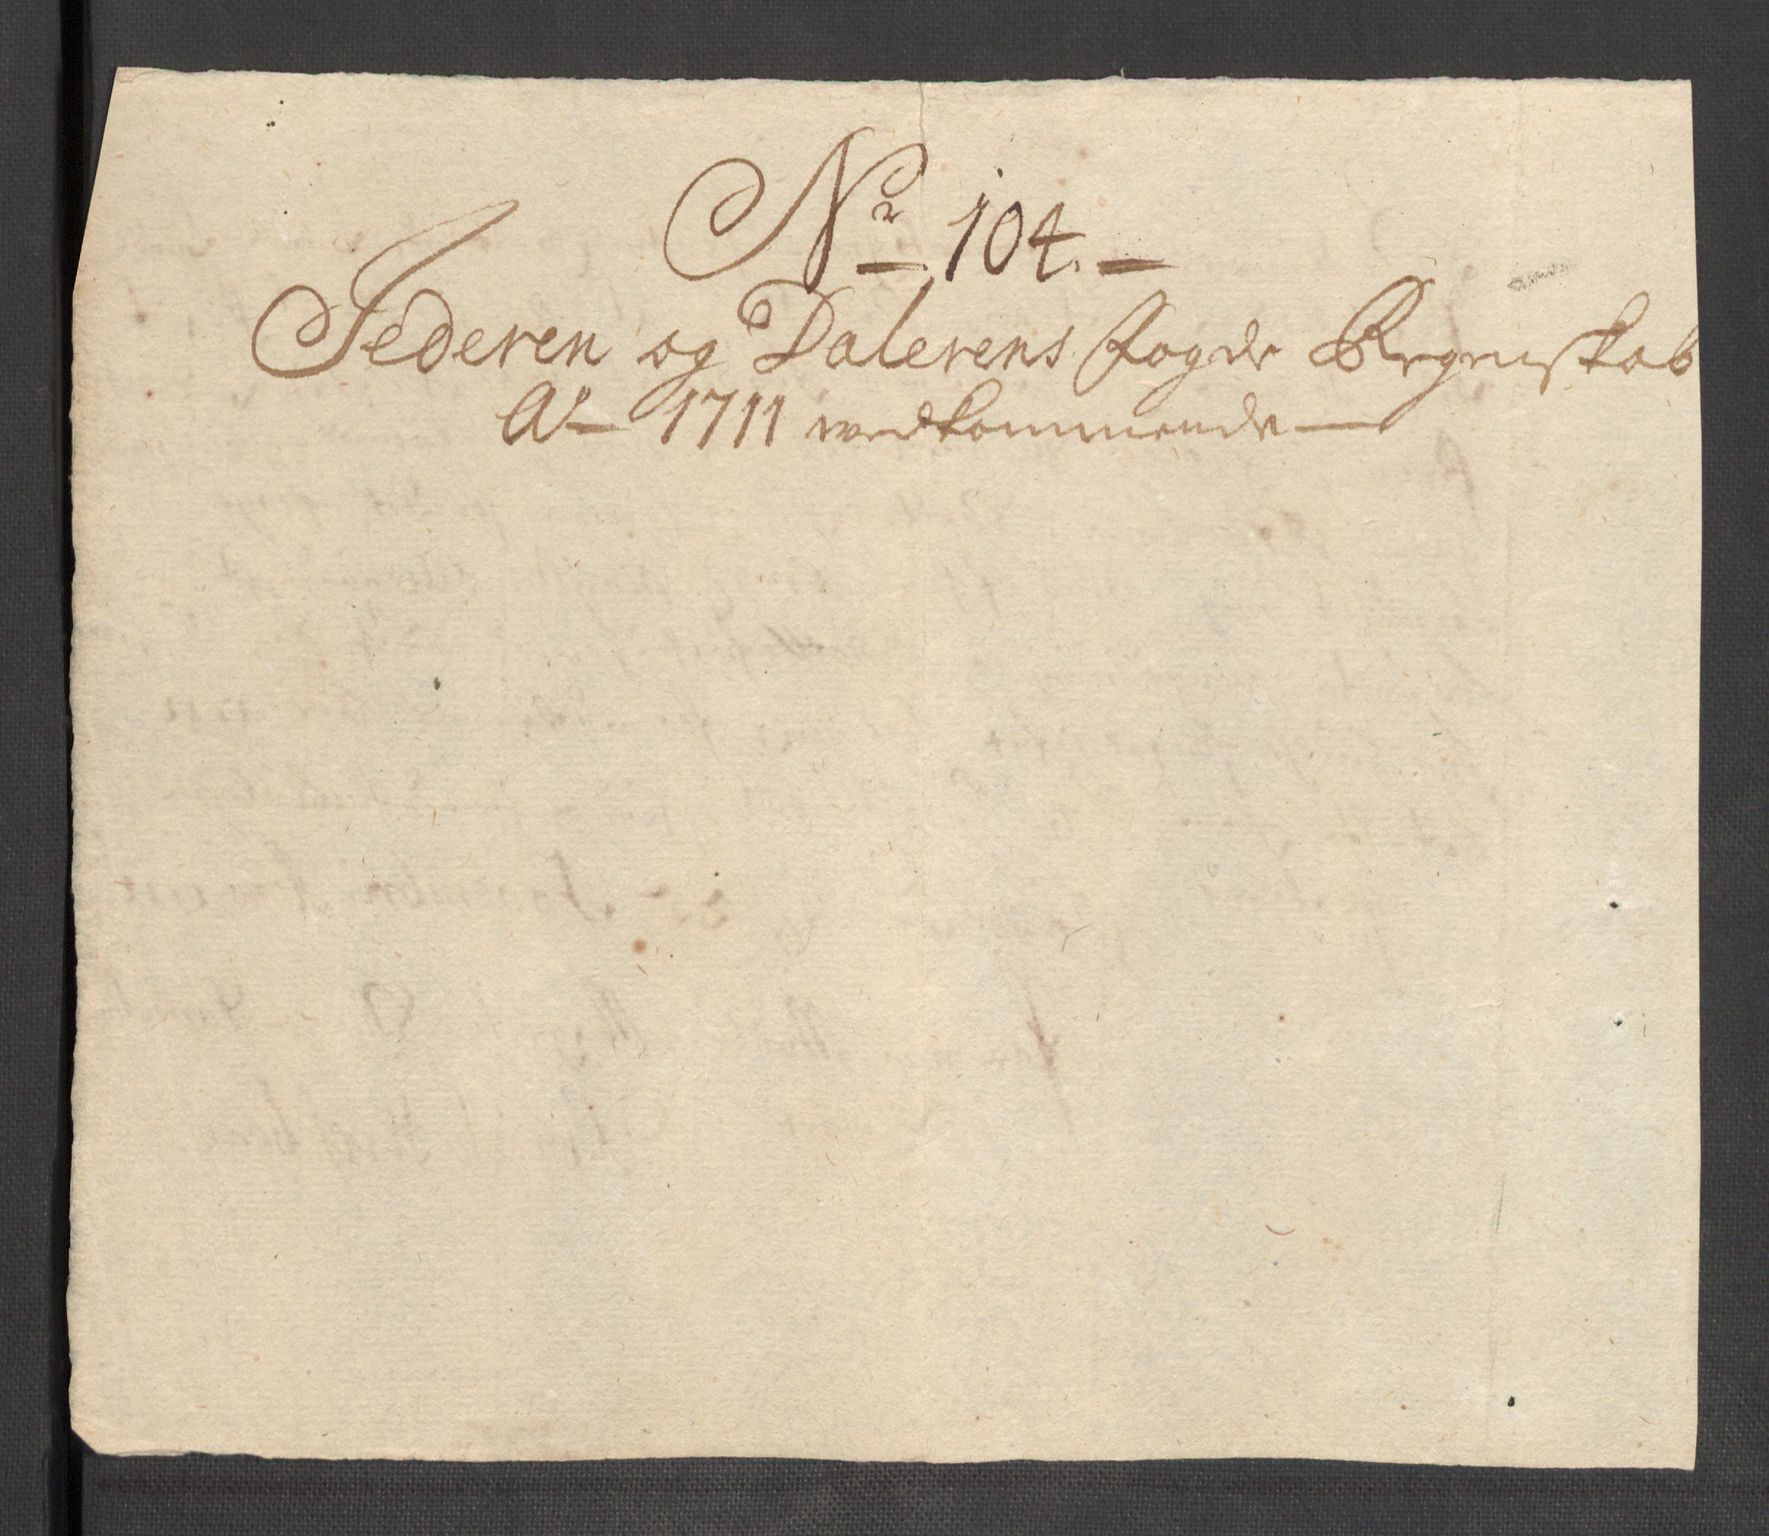 Nr 104.
Jederen og Dalerens fogde Regenskab
Ao 1711 wedkommende